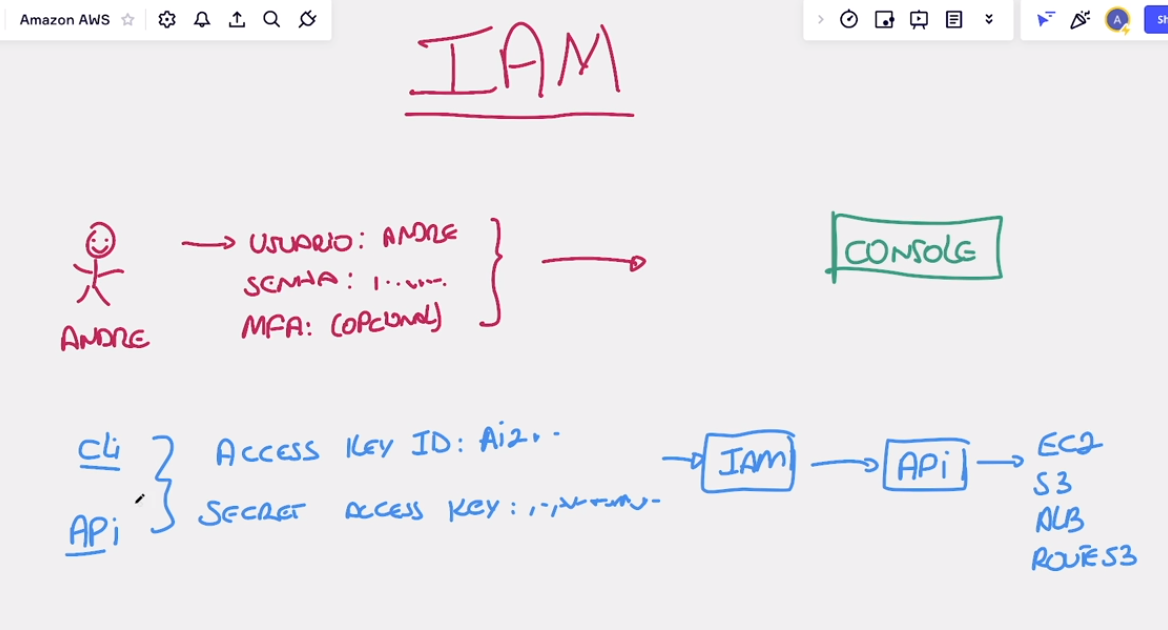 Amazon AWS
A
Sh
IAM
USUARIO: ANDRE
SENHA:
MFA: (OPCIONAL)
ANDRE
CONSOLE
Cli
ACCESS KEY ID: Ai2...
APi
SECRET ACCESS KEY:
IAM
APi
EC2
S3
ALB
ROUTE53